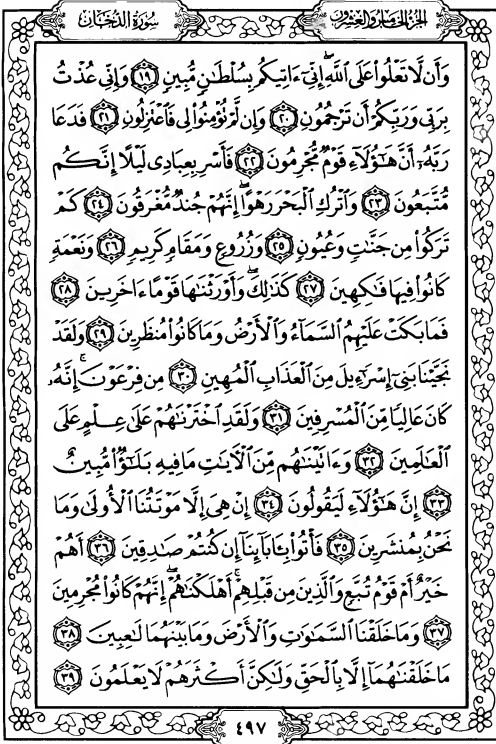 سُورَةُ الدُّخَانِ
الجزء الخامس والعشرون
وَأَن لَّا تَعْلُوا۟ عَلَى ٱللَّهِ ۖ إِنِّىٓ ءَاتِيكُم بِسُلْطَٰنٍ مُّبِينٍ ١٩ وَإِنِّى عُذْتُ
بِرَبِّى وَرَبِّكُمْ أَن تَرْجُمُونِ ٢٠ وَإِن لَّمْ تُؤْمِنُوا۟ لِى فَٱعْتَزِلُونِ ٢١ فَدَعَا
رَبَّهُۥٓ أَنَّ هَٰٓؤُلَآءِ قَوْمٌ مُّجْرِمُونَ ٢٢ فَأَسْرِ بِعِبَادِى لَيْلًا إِنَّكُم
مُّتَّبَعُونَ ٢٣ وَٱتْرُكِ ٱلْبَحْرَ رَهْوًا ۖ إِنَّهُمْ جُندٌ مُّغْرَقُونَ ٢٤ كَمْ
تَرَكُوا۟ مِن جَنَّٰتٍ وَعُيُونٍ ٢٥ وَزُرُوعٍ وَمَقَامٍ كَرِيمٍ ٢٦ وَنَعْمَةٍ
كَانُوا۟ فِيهَا فَٰكِهِينَ ٢٧ كَذَٰلِكَ ۖ وَأَوْرَثْنَٰهَا قَوْمًا ءَاخَرِينَ ٢٨
فَمَا بَكَتْ عَلَيْهِمُ ٱلسَّمَآءُ وَٱلْأَرْضُ وَمَا كَانُوا۟ مُنظَرِينَ ٢٩ وَلَقَدْ
نَجَّيْنَا بَنِىٓ إِسْرَٰٓءِيلَ مِنَ ٱلْعَذَابِ ٱلْمُهِينِ ٣٠ مِن فِرْعَوْنَ ۚ إِنَّهُۥ
كَانَ عَالِيًا مِّنَ ٱلْمُسْرِفِينَ ٣١ وَلَقَدِ ٱخْتَرْنَٰهُمْ عَلَىٰ عِلْمٍ عَلَى
ٱلْعَٰلَمِينَ ٣٢ وَءَاتَيْنَٰهُم مِّنَ ٱلْءَايَٰتِ مَا فِيهِ بَلَٰٓؤٌا۟ مُّبِينٌ
٣٣ إِنَّ هَٰٓؤُلَآءِ لَيَقُولُونَ ٣٤ إِنْ هِىَ إِلَّا مَوْتَتُنَا ٱلْأُولَىٰ وَمَا
نَحْنُ بِمُنشَرِينَ ٣٥ فَأْتُوا۟ بِـَٔابَآئِنَآ إِن كُنتُمْ صَٰدِقِينَ ٣٦ أَهُمْ
خَيْرٌ أَمْ قَوْمُ تُبَّعٍ وَٱلَّذِينَ مِن قَبْلِهِمْ ۚ أَهْلَكْنَٰهُمْ ۖ إِنَّهُمْ كَانُوا۟ مُجْرِمِينَ
٣٧ وَمَا خَلَقْنَا ٱلسَّمَٰوَٰتِ وَٱلْأَرْضَ وَمَا بَيْنَهُمَا لَٰعِبِينَ ٣٨
مَا خَلَقْنَٰهُمَآ إِلَّا بِٱلْحَقِّ وَلَٰكِنَّ أَكْثَرَهُمْ لَا يَعْلَمُونَ ٣٩
٤٩٧